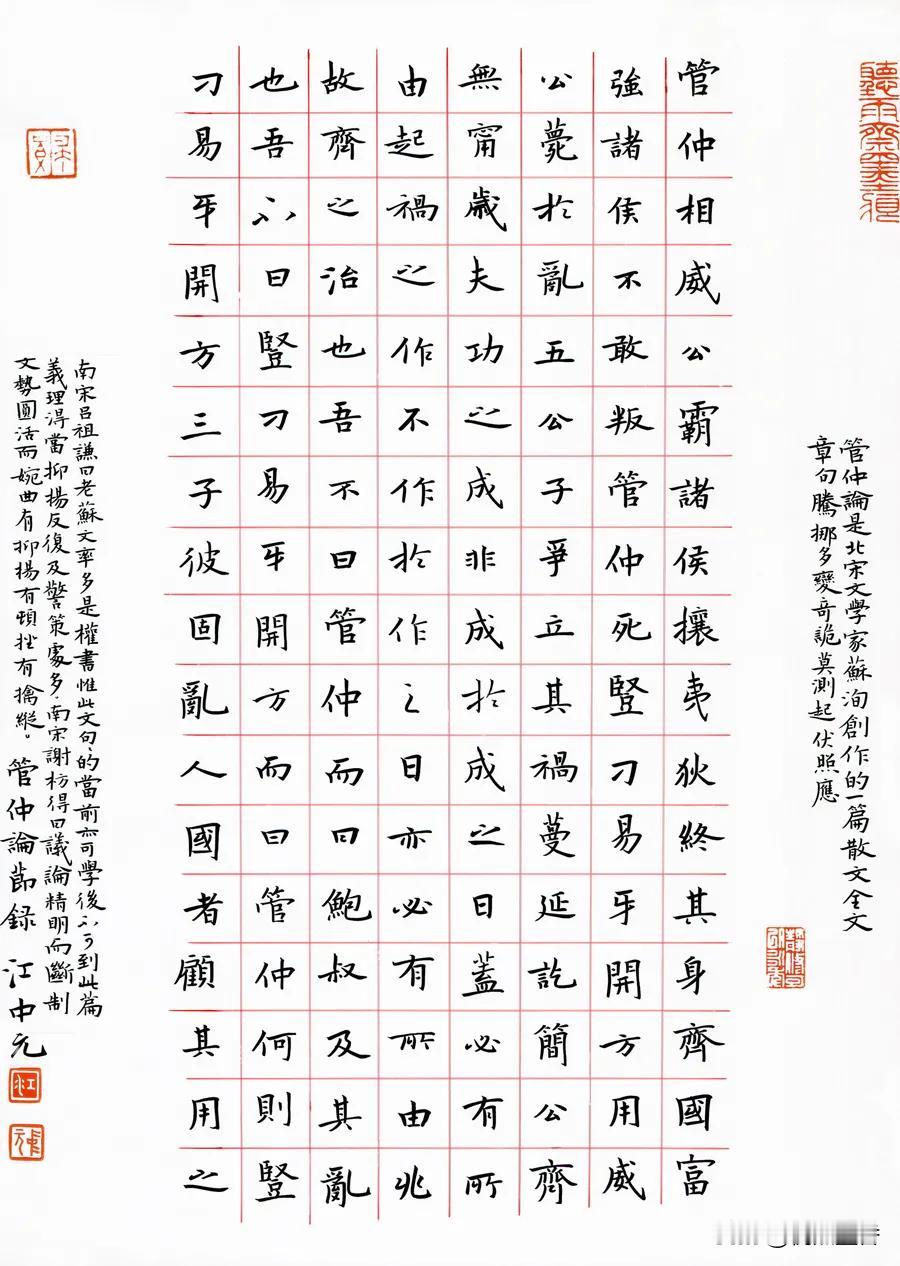 聽雨齋墨
管仲論是北宋文學家蘇洵創作的一篇散文全文
章句騰挪多變奇詭莫測起伏照應
管仲相威公霸諸侯攘夷狄終其身齊國富
強諸侯不敢叛管仲死豎刁易牙開方用威
公薨於亂五公子爭立其禍蔓延訖簡公齊
無甯歲夫功之成非成於成之日蓋必有所
由起禍之作不作於作之日亦必有所由兆
故齊之治也吾不曰管仲而曰鮑叔及其亂
也吾不曰豎刁易牙開方而曰管仲何則豎
刁易牙開方三子彼固亂人國者顧其用之
南宋呂祖謙曰老蘇文率多是權書惟此文句、的當前亦可學後不可到此篇
義理淂當抑揚反復及警策處多.南宋謝枋得曰議論精明而斷制
文勢圓活而婉曲有抑揚有頓挫有擒縱。管仲論節錄 江中元
江